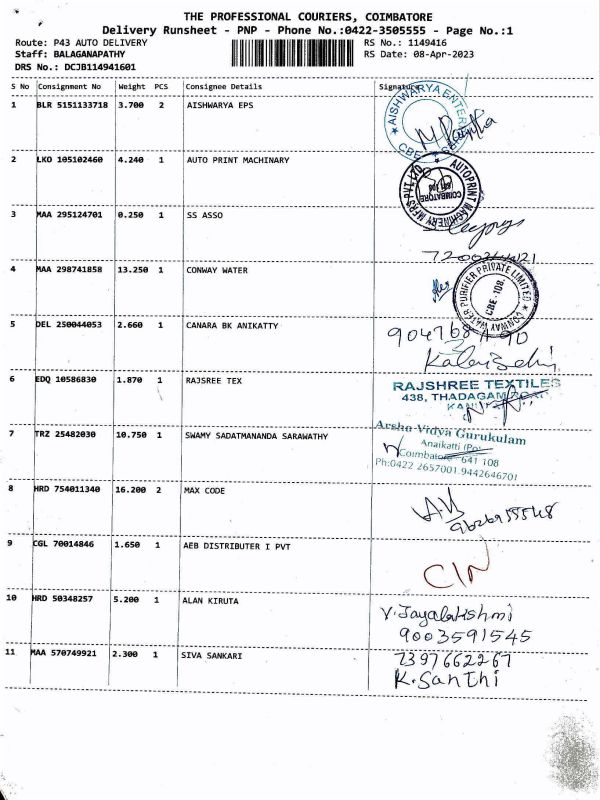 THE PROFESSIONAL COURIERS, COIMBATORE
Delivery Runsheet - PNP - Phone No.:0422-3505555 - Page No.:1
Route: P43 AUTO DELIVERY RS No.: 1149416
Staff: BALAGANAPATHY RS Date: 08-Apr-2023
DRS No.: DCJB114941601
S No Consignment No Weight PCS Consignee Details Signature
1 BLR 5151133718 3.700 2 AISHWARYA EPS
AISHWARYA ENTER
CBE
2 LKO 105102460 4.240 1 AUTO PRINT MACHINARY
AUTOPRINT MACHINERY MFRS PVT LTD
COIMBATORE
3 MAA 295124701 0.250 1 SS ASSO
4 MAA 298741858 13.250 1 CONWAY WATER
CONWAY WATER PURIFIER PRIVATE LIMITED
CBE-108.
5 DEL 250044053 2.660 1 CANARA BK ANIKATTY
6 EDQ 10586830 1.870 1 RAJSREE TEX
RAJSHREE TEXTILES
438, THADAGAM ROAD
7 TRZ 25482030 10.750 1 SWAMY SADATMANANDA SARAWATHY
Arsha Vidya Gurukulam
Anaikatti (Po)
Coimbatore - 641 108
Ph:0422 2657001.9442646701
8 HRD 754011340 16.200 2 MAX CODE
9 CGL 70014846 1.650 1 AEB DISTRIBUTER I PVT
10 HRD 50348257 5.200 1 ALAN KIRUTA
V. Jayalakshmi
9003591545
11 MAA 570749921 2.300 1 SIVA SANKARI
7397662267
K. Santhi